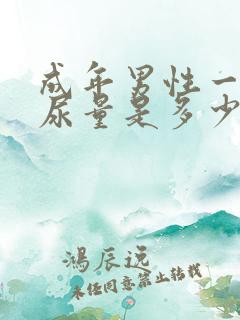 成年男性一
尿量是多少
鸿辰远
未经同意禁止转载